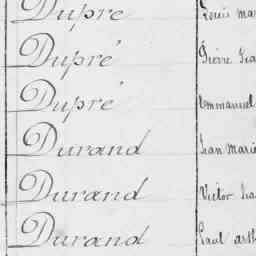 Dupré Louis
Dupré Pierre
Dupré Emmanuel
Durand Jean Marie
Durand Victor
Durand Paul